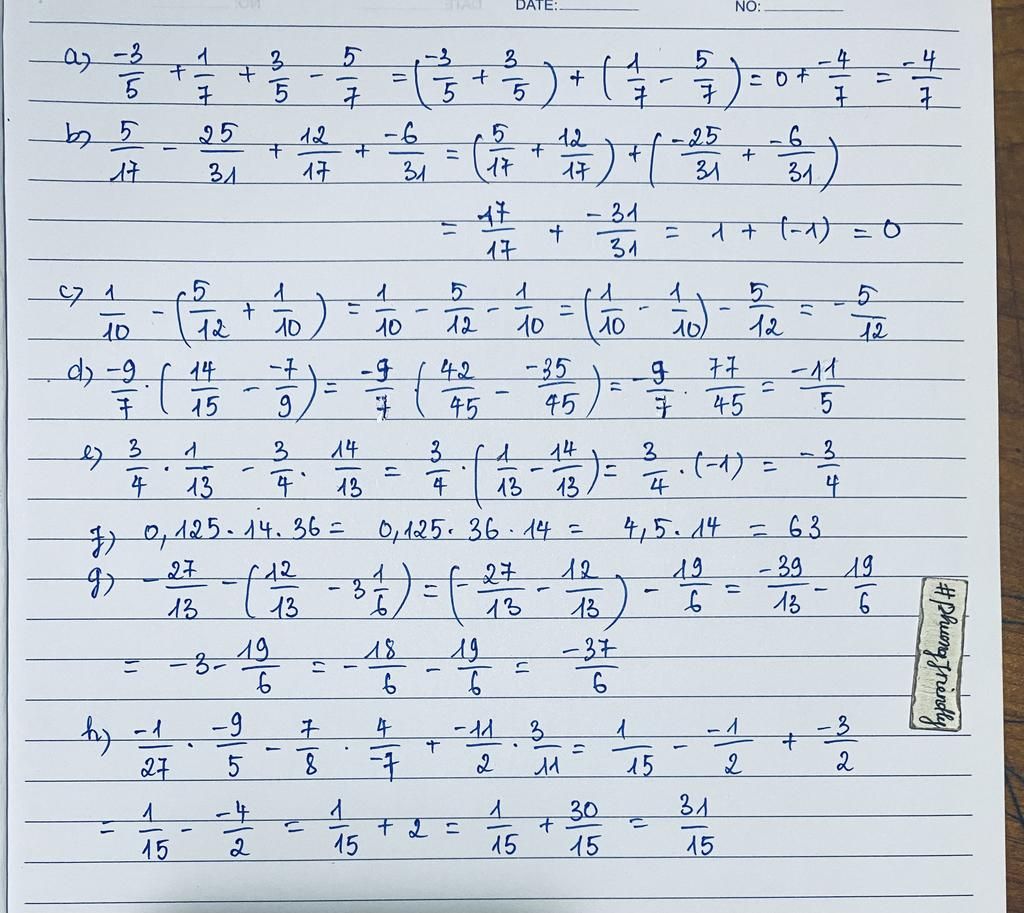 DATE: NO:
a) -3/5 + 1/7 + 3/5 - 5/7 = (-3/5 + 3/5) + (1/7 - 5/7) = 0 + -4/7 = -4/7
b) 5/17 - 25/31 + 12/17 + -6/31 = (5/17 + 12/17) + (-25/31 + -6/31)
= 17/17 + -31/31 = 1 + (-1) = 0
c) 1/10 - (5/12 + 1/10) = 1/10 - 5/12 - 1/10 = (1/10 - 1/10) - 5/12 = -5/12
d) -9/7 . (14/15 - -7/9) = -9/7 (42/45 - -35/45) = -9/7 . 77/45 = -11/5
e) 3/4 . 1/13 - 3/4 . 14/13 = 3/4 . (1/13 - 14/13) = 3/4 . (-1) = -3/4
f) 0,125 . 14 . 36 = 0,125 . 36 . 14 = 4,5 . 14 = 63
g) -27/13 - (12/13 - 3 1/6) = (-27/13 - 12/13) - 19/6 = -39/13 - 19/6
= -3 - 19/6 = -18/6 - 19/6 = -37/6
#phungfriendly
h) -1/27 . -9/5 - 7/8 . 4/-7 + -11/2 . 3/11 = 1/15 - -1/2 + -3/2
= 1/15 - -4/2 = 1/15 + 2 = 1/15 + 30/15 = 31/15